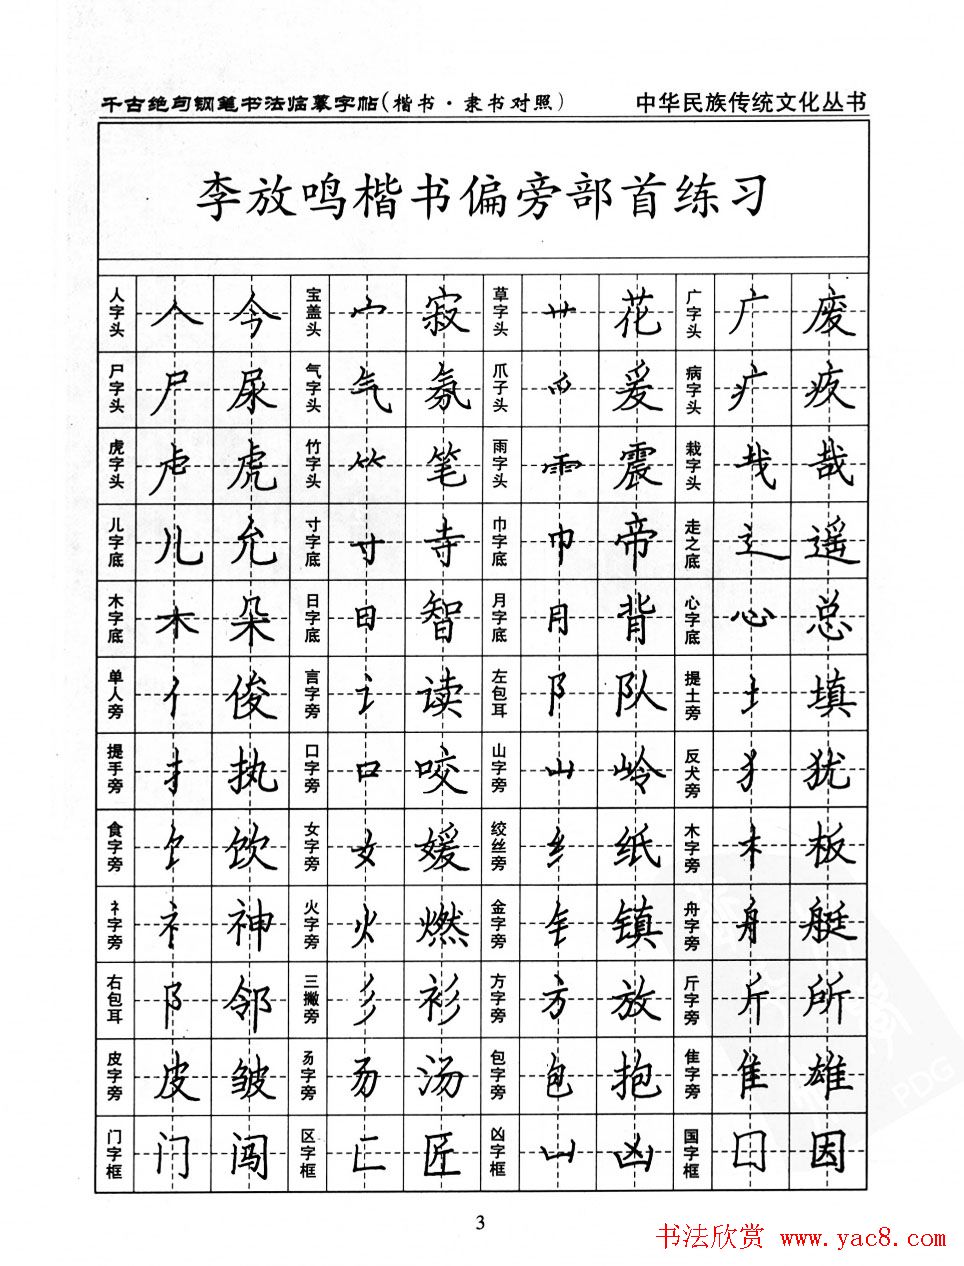 千古绝句钢笔书法临摹字帖(楷书·隶书对照) 中华民族传统文化丛书
李放鸣楷书偏旁部首练习
人字头 人 今 宝盖头 宀 寂 草字头 艹 花 广字头 广 废
尸字头 尸 尿 气字头 气 氛 爪子头 爫 爰 病字头 疒 疫
虎字头 虍 虎 竹字头 ⺮ 笔 雨字头 ⻗ 震 栽字头 𢦏 哉
儿字底 儿 允 寸字底 寸 寺 巾字底 巾 帝 走之底 辶 遥
木字底 木 朵 日字底 日 智 月字底 月 背 心字底 心 总
单人旁 亻 俊 言字旁 讠 读 左包耳 阝 队 提土旁 土 填
提手旁 扌 执 口字旁 口 咬 山字旁 山 岭 反犬旁 犭 犹
食字旁 饣 饮 女字旁 女 媛 绞丝旁 纟 纸 木字旁 木 板
礻字旁 礻 神 火字旁 火 燃 金字旁 钅 镇 舟字旁 舟 艇
右包耳 阝 邻 三撇旁 彡 衫 方字旁 方 放 斤字旁 斤 所
皮字旁 皮 皱 㐆字旁 汤 包字旁 包 抱 隹字旁 隹 雄
门字框 门 闯 区字框 匚 匠 凶字框 凵 凶 国字框 囗 因
3
书法欣赏 www.yac8.com
PDG